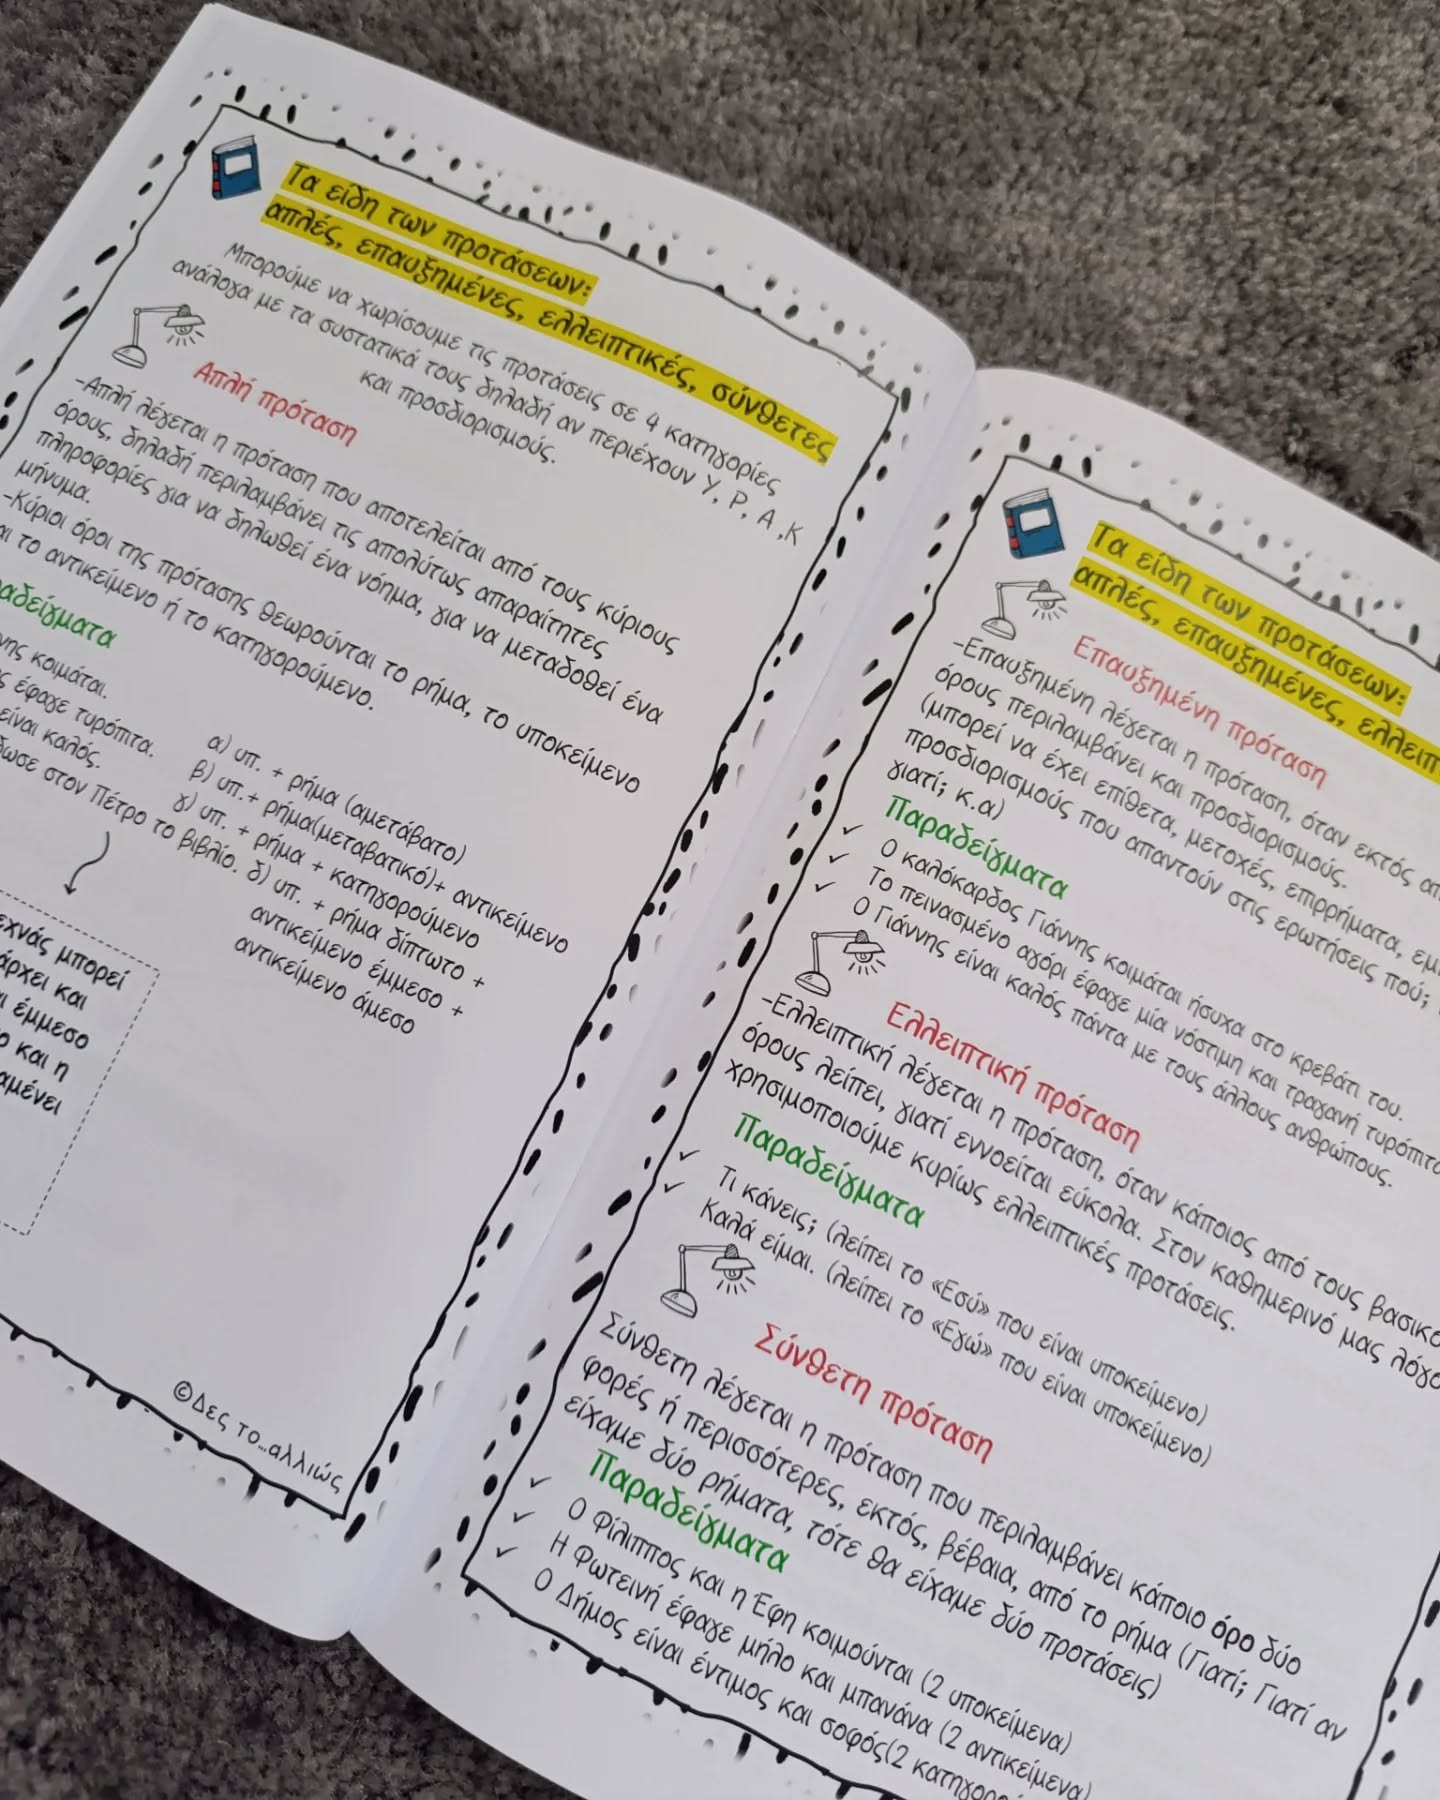 Τα είδη των προτάσεων:
απλές, επαυξημένες, ελλειπτικές, σύνθετες
Μπορούμε να χωρίσουμε τις προτάσεις σε 4 κατηγορίες
ανάλογα με τα συστατικά τους δηλαδή αν περιέχουν Υ, Ρ, Α ,Κ
και προσδιορισμούς.
Απλή πρόταση
-Απλή λέγεται η πρόταση που αποτελείται από τους κύριους
όρους, δηλαδή περιλαμβάνει τις απολύτως απαραίτητες
πληροφορίες για να δηλωθεί ένα νόημα, για να μεταδοθεί ένα
μήνυμα.
-Κύριοι όροι της πρότασης θεωρούνται το ρήμα, το υποκείμενο
το αντικείμενο ή το κατηγορούμενο.
κοιμάται.
έφαγε τυρόπιτα.
είναι καλός.
στον Πέτρο το βιβλίο.
α) υπ. + ρήμα (αμετάβατο)
β) υπ.+ ρήμα(μεταβατικό)+ αντικείμενο
γ) υπ. + ρήμα + κατηγορούμενο
δ) υπ. + ρήμα δίπτωτο +
αντικείμενο έμμεσο +
αντικείμενο άμεσο
μπορεί
και
έμμεσο
και η
©Δες το...αλλιώς
Τα είδη των προτάσεων:
απλές, επαυξημένες,
Επαυξημένη πρόταση
-Επαυξημένη λέγεται η πρόταση, όταν εκτός
όρους περιλαμβάνει και προσδιορισμούς.
(μπορεί να έχει επίθετα, μετοχές, επιρρήματα,
προσδιορισμούς που απαντούν στις ερωτήσεις πού;
γιατί; κ.α)
Παραδείγματα
✓ Ο καλόκαρδος Γιάννης κοιμάται ήσυχα στο κρεβάτι του.
✓ Το πεινασμένο αγόρι έφαγε μία νόστιμη και τραγανή
✓ Ο Γιάννης είναι καλός πάντα με τους άλλους ανθρώπους.
Ελλειπτική πρόταση
-Ελλειπτική λέγεται η πρόταση, όταν κάποιος από τους
όρους λείπει, γιατί εννοείται εύκολα. Στον καθημερινό μας
χρησιμοποιούμε κυρίως ελλειπτικές προτάσεις.
Παραδείγματα
✓ Τι κάνεις; (λείπει το «Εσύ» που είναι υποκείμενο)
✓ Καλά είμαι. (λείπει το «Εγώ» που είναι υποκείμενο)
Σύνθετη πρόταση
Σύνθετη λέγεται η πρόταση που περιλαμβάνει κάποιο όρο δύο
φορές ή περισσότερες, εκτός, βέβαια, από το ρήμα (Γιατί; Γιατί αν
είχαμε δύο ρήματα, τότε θα είχαμε δύο προτάσεις)
Παραδείγματα
✓ Ο Φίλιππος και η Έφη κοιμούνται (2 υποκείμενα)
✓ Η Φωτεινή έφαγε μήλο και μπανάνα (2 αντικείμενα)
✓ Ο Δήμος είναι έντιμος και σοφός(2